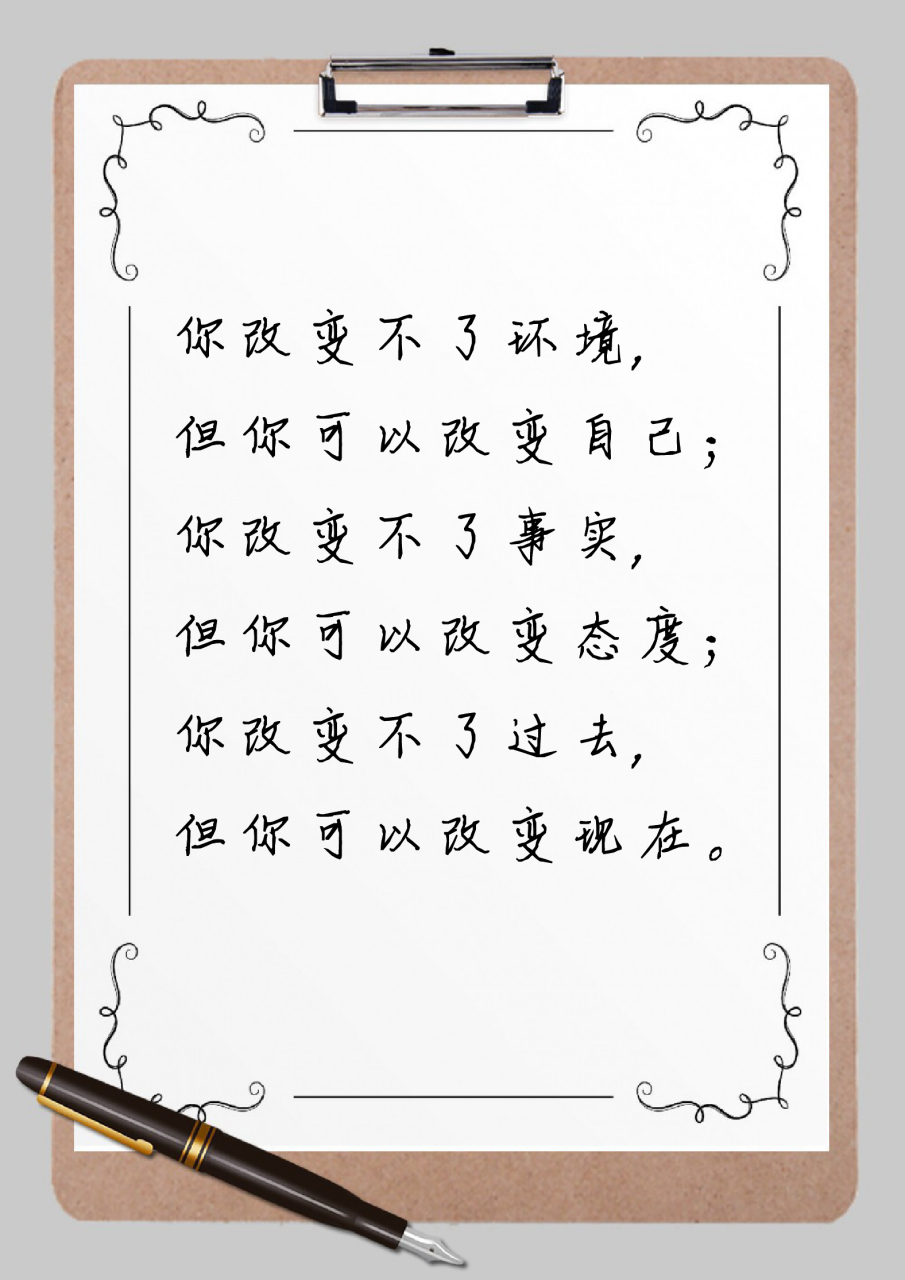 你改变不了环境，
但你可以改变自己；
你改变不了事实，
但你可以改变态度；
你改变不了过去，
但你可以改变现在。